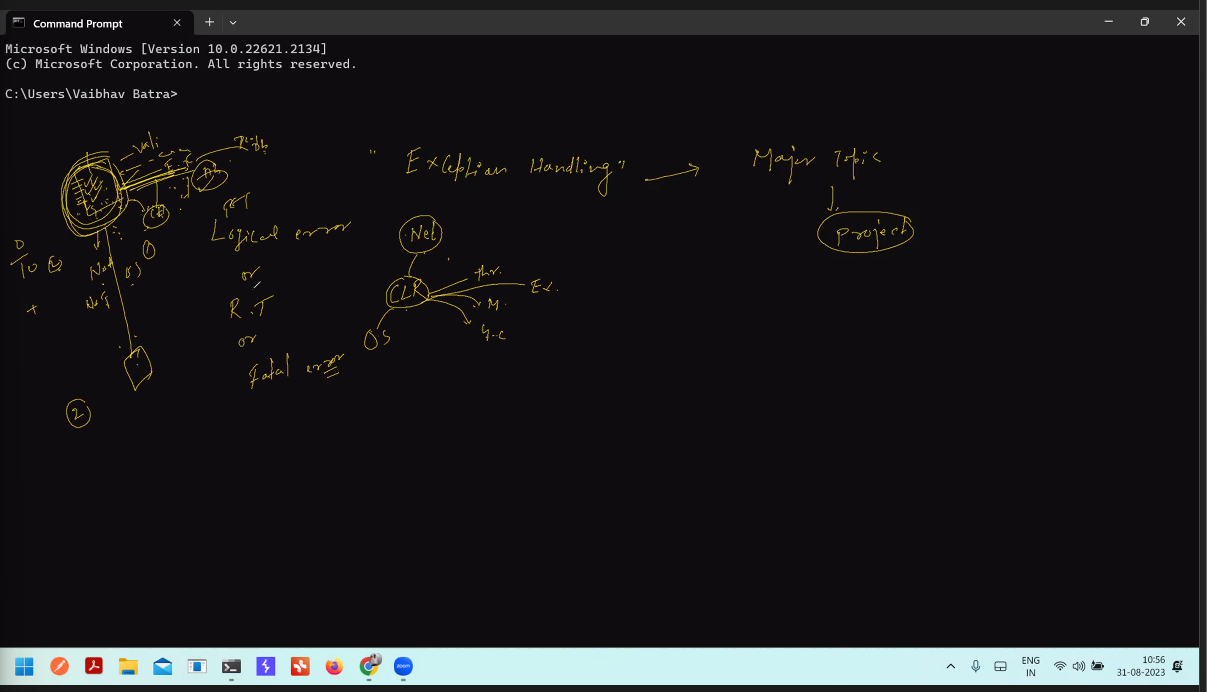 Command Prompt
Microsoft Windows [Version 10.0.22621.2134]
(c) Microsoft Corporation. All rights reserved.
C:\Users\Vaibhav Batra>
Vali
"Exception Handling" → Major Topic
Project
Logical error
or
R.T
or
Fatal error
.Net
CLR
thr.
Ex.
M.
G.C
OS
1
2
zoom
ENG
IN
10:56
31-08-2023